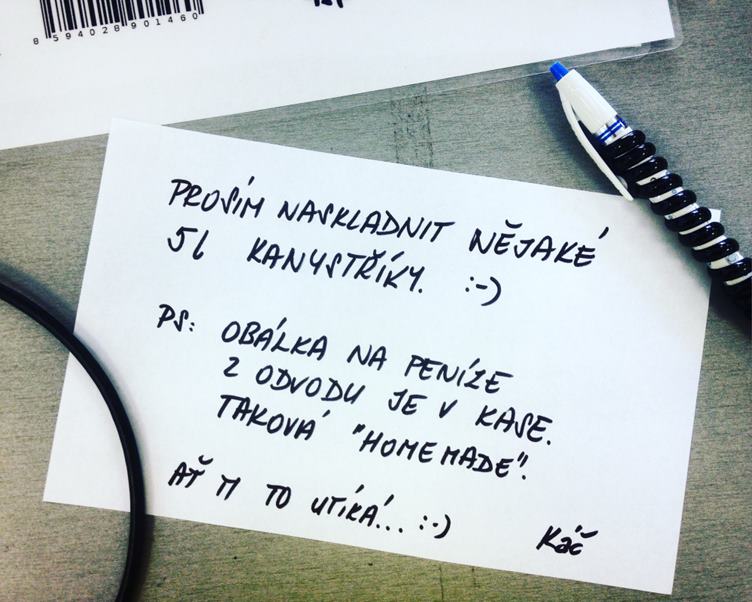 8 594028 901460
PROSÍM NASKLADNIT NĚJAKÉ
5l KANYSTŘÍKY. :-)
PS: OBÁLKA NA PENÍZE
Z ODVODU JE V KASE.
TAKOVÁ "HOMEMADE".
AŤ TI TO UTÍKÁ... :-)
Káč